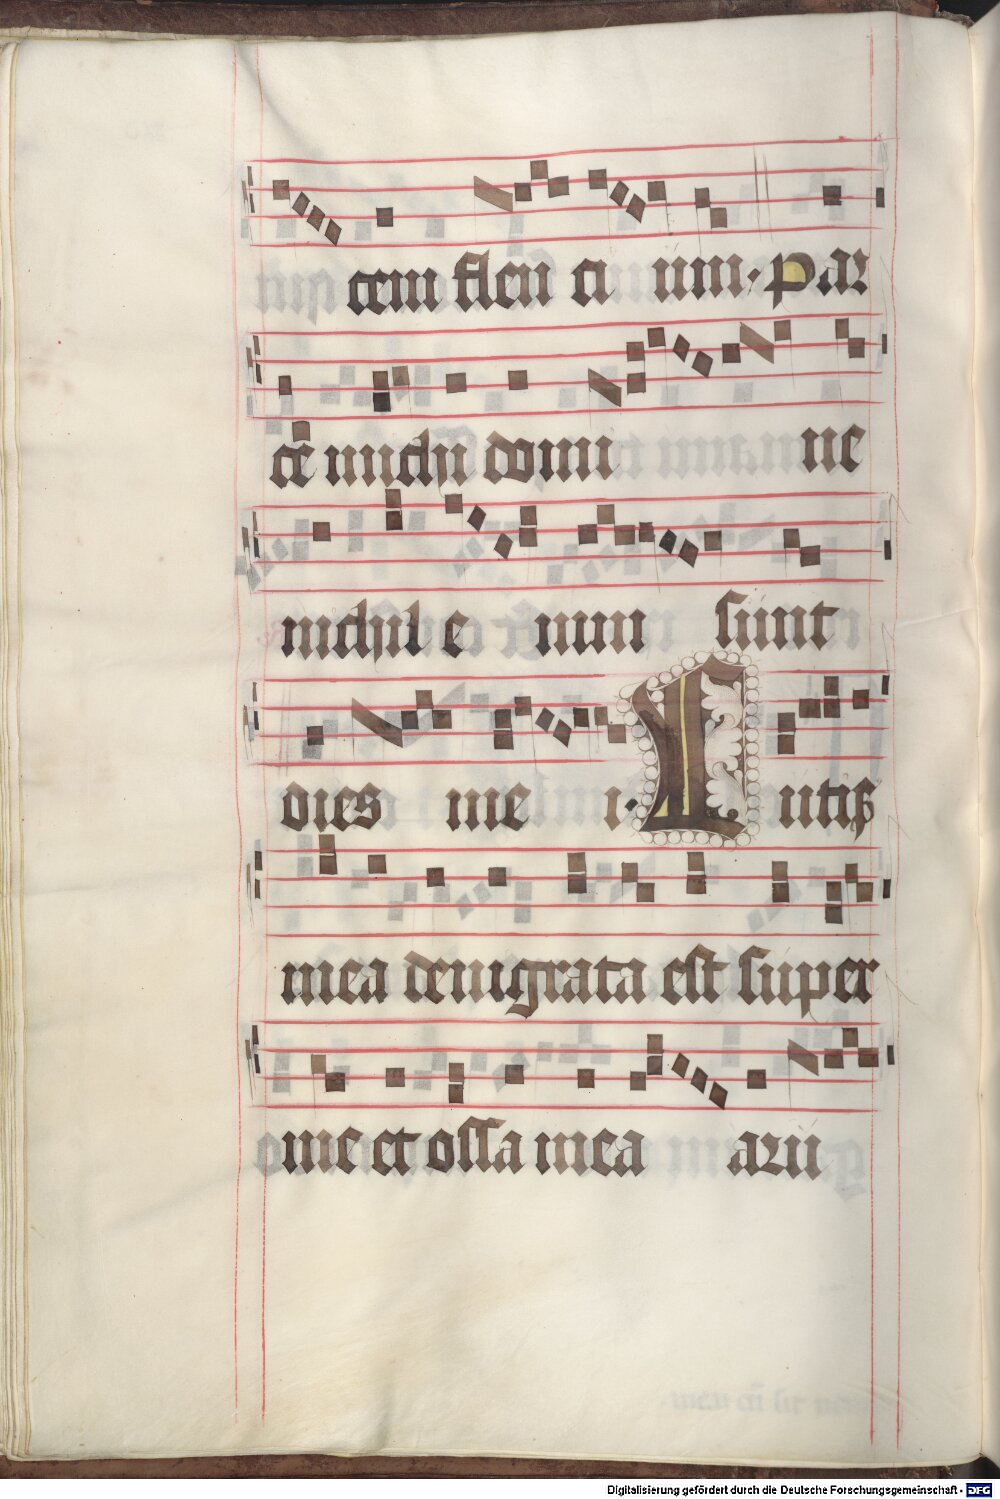 tem flen ti um. Par
ce michi domi ne
nichil e nim sunt
dies me i. Cutis
mea denigrata est super
me et ossa mea aru
Digitalisierung gefördert durch die Deutsche Forschungsgemeinschaft - DFG